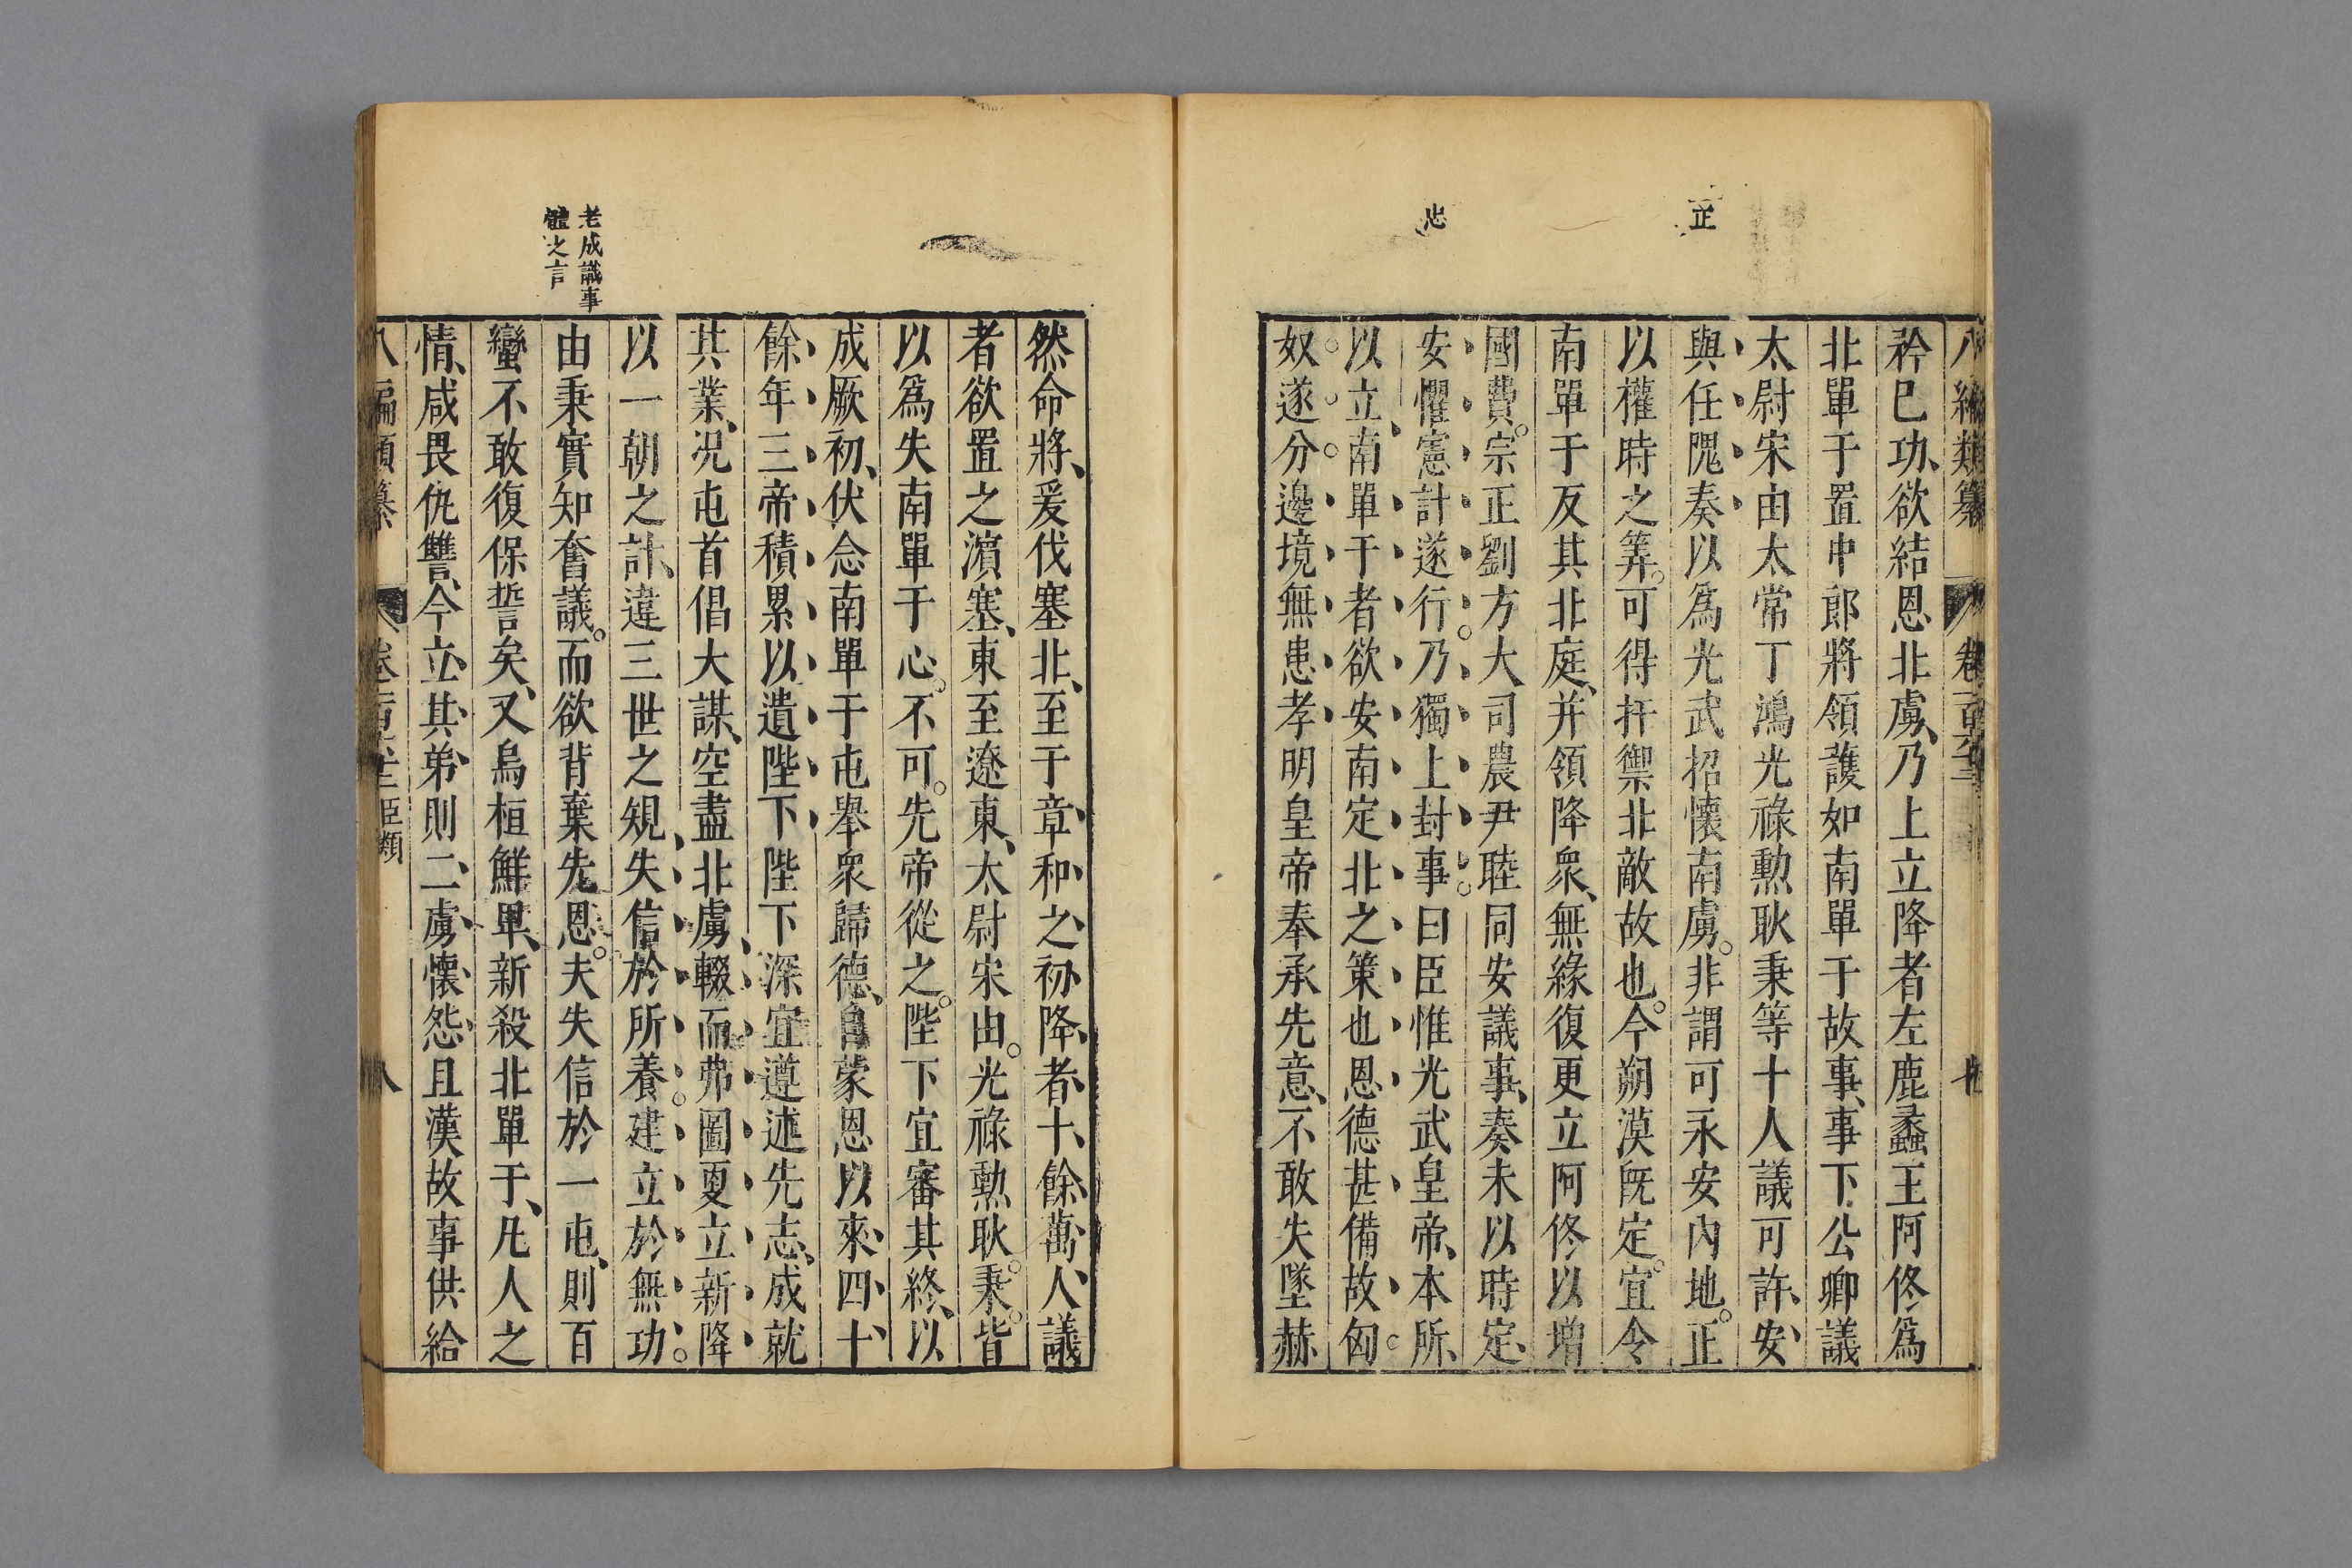 八編類纂 卷一百六十三 廿
矜已功欲結恩北虜乃上立降者左鹿蠡王阿佟爲
北單于置中郎將領護如南單于故事事下公卿議
太尉宋由太常丁鴻光祿勲耿秉等十人議可許安
與任隗奏以爲光武招懷南虜非謂可永安內地正
以權時之筭可得扞禦北敵故也今朔漠旣定宜令
南單于反其北庭并領降衆無緣復更立阿佟以增
國費宗正劉方大司農尹睦同安議事奏未以時定
安懼憲計遂行乃獨上封事曰臣惟光武皇帝本所
以立南單于者欲安南定北之策也恩德甚備故匈
奴遂分邊境無患孝明皇帝奉承先意不敢失墜赫
正
忠
然命將爰伐塞北至于章和之初降者十餘萬人議
者欲置之濵塞東至遼東太尉宋由光祿勲耿秉皆
以爲失南單于心不可先帝從之陛下宜審其終以
成厥初伏念南單于屯舉衆歸德自蒙恩以來四十
餘年三帝積累以遺陛下陛下深宜遵述先志成就
其業况屯首倡大謀空盡北虜輟而弗圖更立新降
以一朝之計違三世之䂓失信於所養建立於無功
由秉實知奮議而欲背棄先恩夫失信於一屯則百
蠻不敢復保誓矣又烏桓鮮𤰞新殺北單于凡人之
情咸畏仇讐今立其弟則二虜懷怨且漢故事供給
老成識事
體之言
八編類纂 卷一百六十三 臣類 八